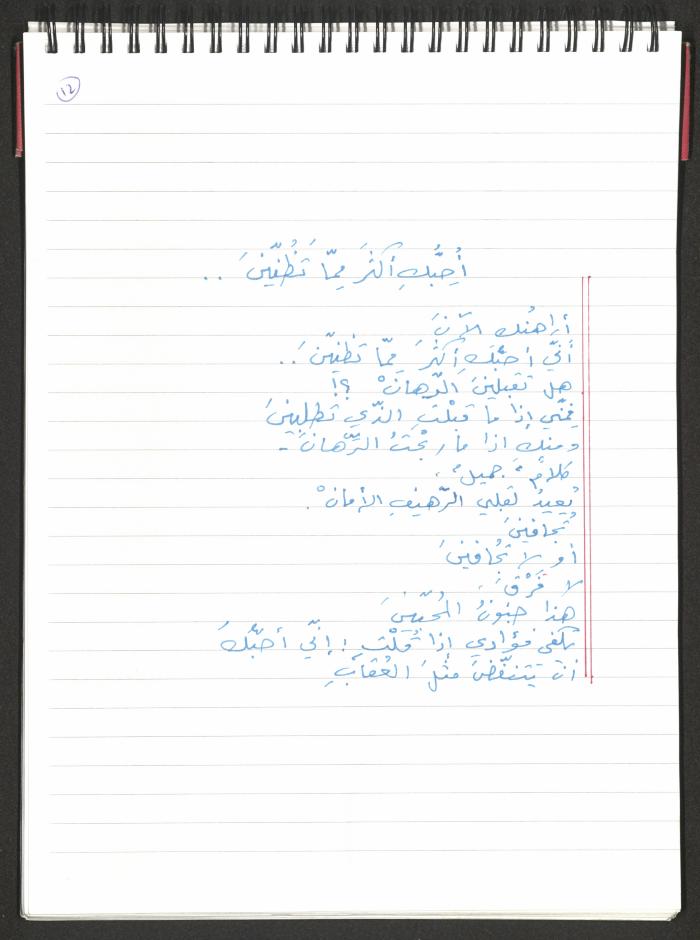 ١٢
أُحِبُّكِ أكثَرَ مِمّا تَظُنّينَ ..
أراهنُك الآنَ
أنّي أحبُّكِ أكثرَ مِمّا تظنّينَ ..
هل تقبلينَ الرّهانْ ؟!
فمنّي إذا ما قبلْتِ الذّي تطلبينَ
ومنك اذا ما ربحْتُ الرّهانَ -
كلامٌ جميلٌ ..
يُعيدُ لقلبي الرّهيفِ الأمانْ .
تُجافينَ
أو لا تُجافينَ
لا فَرْقَ ..
هذا جنونُ المُحبّينَ
يكفي فؤادي إذا قُلْتِ : إنّي أحبُّكَ
أن يَتنفّضَ مثلَ العُقابِ